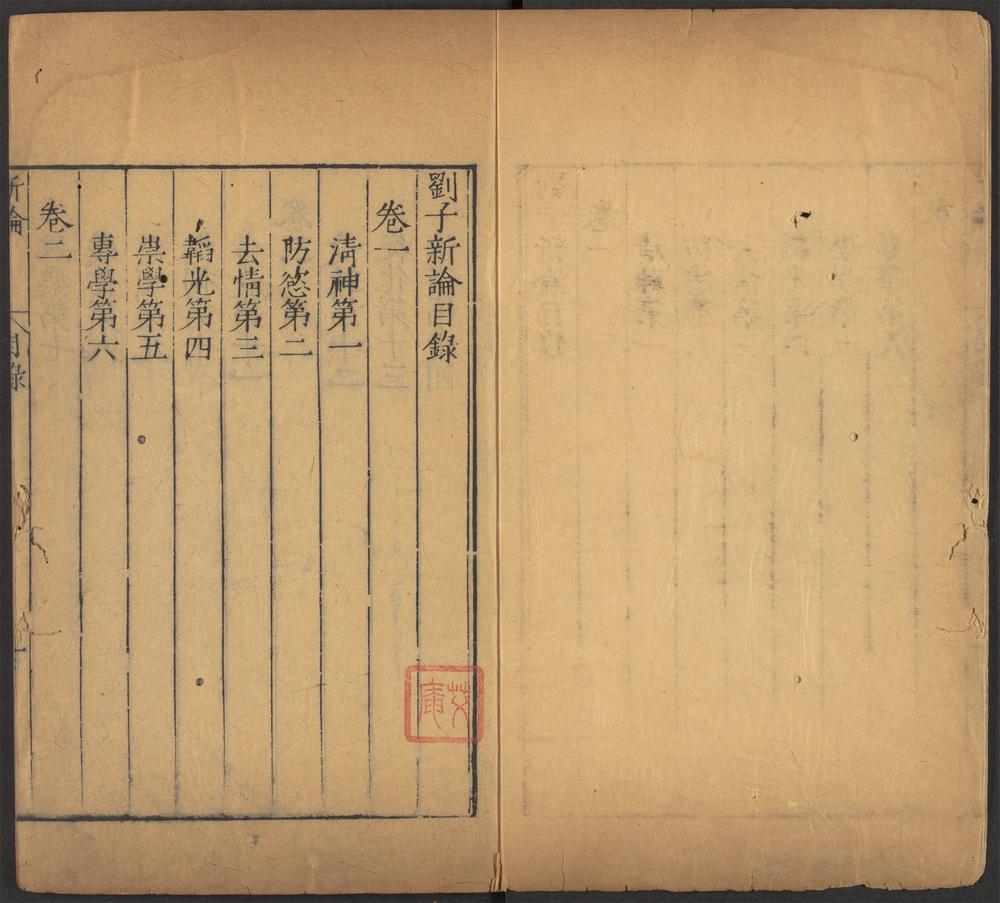 劉子新論目錄
卷一
淸神第一
防慾第二
去情第三
韜光第四
崇學第五
專學第六
卷二
新論 目錄 一